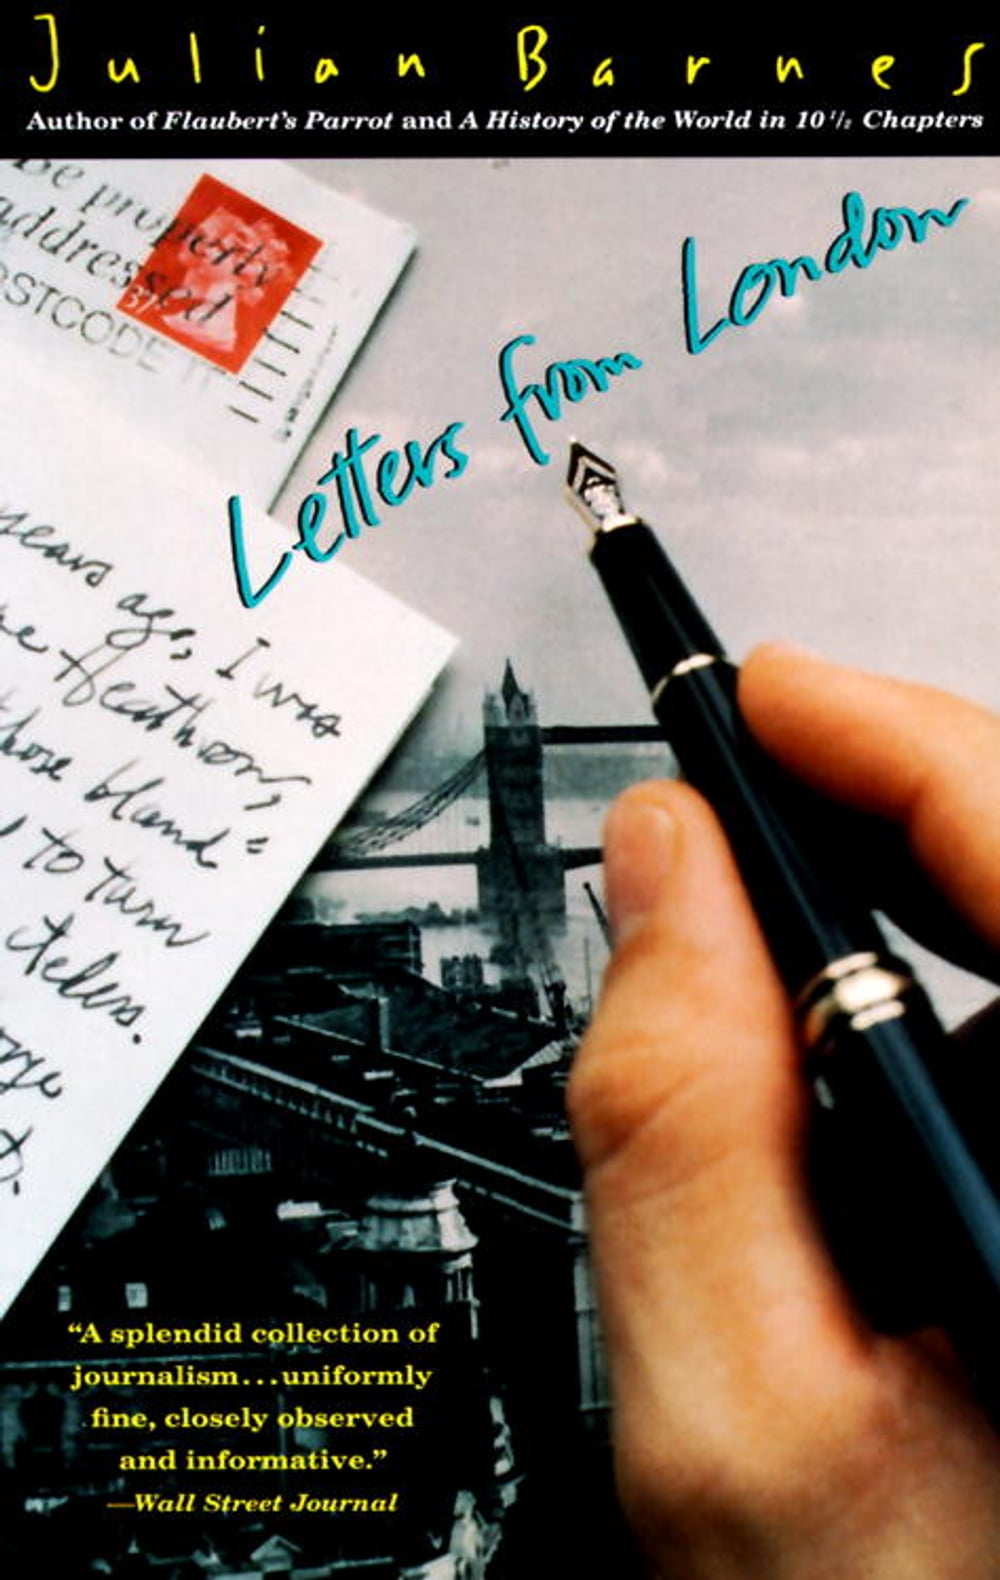 Julian Barnes
Author of Flaubert's Parrot and A History of the World in 10 1/2 Chapters
be properly
addressed
POSTCODE
37
Letters from London
years ago, I was
those bland
to turn
"A splendid collection of
journalism...uniformly
fine, closely observed
and informative."
—Wall Street Journal